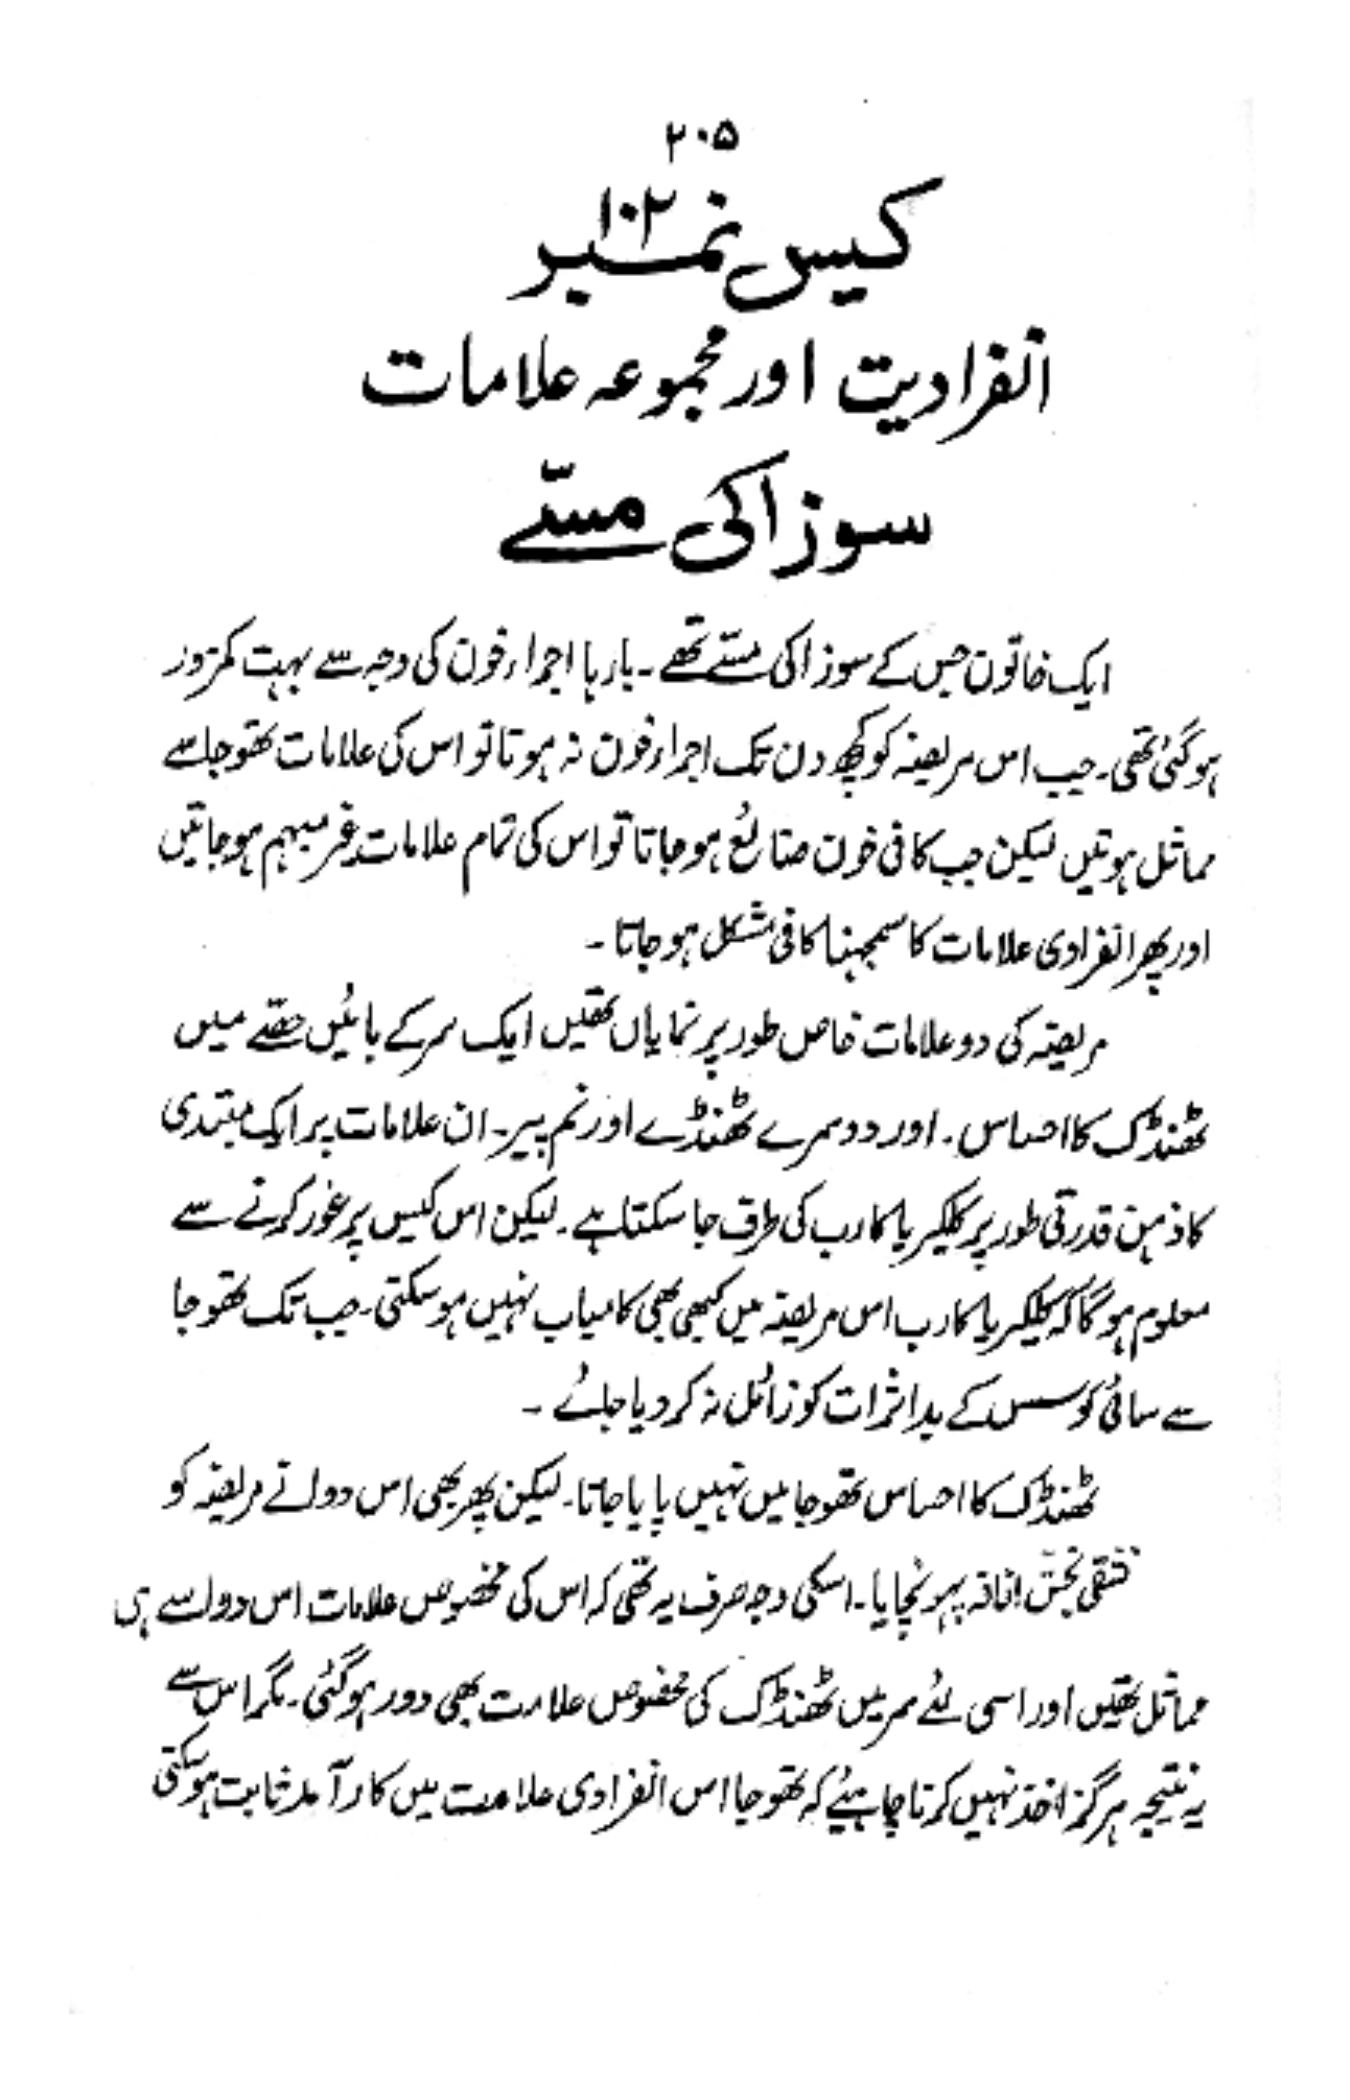 ۲۰۵
کیس نمبر ۱۰۲
انفرادیت اور مجموعہ علامات
سوزاکی مسّے
ایک خاتون جس کے سوزاکی مسّے تھے۔ بارہا اجراء خون کی وجہ سے بہت کمزور
ہو گئی تھی۔ جب اس مریضہ کو کچھ دن تک اجراء خون نہ ہوتا تو اس کی علامات تھوجا سے
مماثل ہوتیں لیکن جب کافی خون ضائع ہو جاتا تو اس کی تمام علامات غیر مبہم ہو جاتیں
اور پھر انفرادی علامات کا سمجھنا کافی مشکل ہو جاتا۔
مریضہ کی دو علامات خاص طور پر نمایاں تھیں ایک سر کے بائیں حصّے میں
ٹھنڈک کا احساس۔ اور دوسرے ٹھنڈے اور نم پیر۔ ان علامات پر ایک مبتدی
کا ذہن قدرتی طور پر کلکیریا کارب کی طرف جا سکتا ہے۔ لیکن اس کیس پر غور کرنے سے
معلوم ہوگا کہ کلکیریا کارب اس مریضہ میں کبھی بھی کامیاب نہیں ہو سکتی۔ جب تک تھوجا
سے سائی کوسس کے بد اثرات کو زائل نہ کر دیا جائے۔
ٹھنڈک کا احساس تھوجا میں نہیں پایا جاتا۔ لیکن پھر بھی اس دوا نے مریضہ کو
تشفی بخش افاقہ پہونچایا۔ اسکی وجہ صرف یہ تھی کہ اس کی مخصوص علامات اس دوا سے ہی
مماثل تھیں اور اسی لئے سر میں ٹھنڈک کی مخصوص علامت بھی دور ہو گئی۔ مگر اس سے
یہ نتیجہ ہرگز اخذ نہیں کرنا چاہیئے کہ تھوجا اس انفرادی علامت میں کارآمد ثابت ہو سکتی